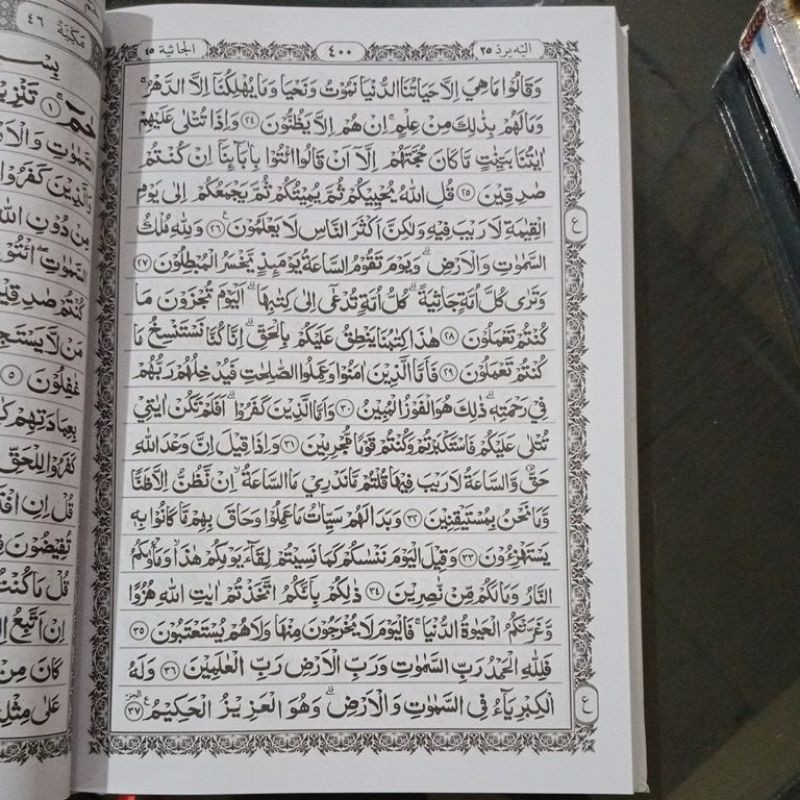 الجاثية ٤٥
٤٠٠
اليه يرد ٢٥
وَقَالُوْا مَا هِيَ اِلَّا حَيَاتُنَا الدُّنْيَا نَمُوْتُ وَنَحْيَا وَمَا يُهْلِكُنَآ اِلَّا الدَّهْرُۚ
وَمَا لَهُمْ بِذٰلِكَ مِنْ عِلْمٍۚ اِنْ هُمْ اِلَّا يَظُنُّوْنَ ٢٤ وَاِذَا تُتْلٰى عَلَيْهِمْ
اٰيٰتُنَا بَيِّنٰتٍ مَّا كَانَ حُجَّتَهُمْ اِلَّآ اَنْ قَالُوا ائْتُوْا بِاٰبَآئِنَآ اِنْ كُنْتُمْ
صٰدِقِيْنَ ٢٥ قُلِ اللّٰهُ يُحْيِيْكُمْ ثُمَّ يُمِيْتُكُمْ ثُمَّ يَجْمَعُكُمْ اِلٰى يَوْمِ
الْقِيٰمَةِ لَا رَيْبَ فِيْهِ وَلٰكِنَّ اَكْثَرَ النَّاسِ لَا يَعْلَمُوْنَ ٢٦ وَلِلّٰهِ مُلْكُ
السَّمٰوٰتِ وَالْاَرْضِۗ وَيَوْمَ تَقُوْمُ السَّاعَةُ يَوْمَئِذٍ يَّخْسَرُ الْمُبْطِلُوْنَ ٢٧
وَتَرٰى كُلَّ اُمَّةٍ جَاثِيَةًۗ كُلُّ اُمَّةٍ تُدْعٰٓى اِلٰى كِتٰبِهَاۗ اَلْيَوْمَ تُجْزَوْنَ مَا
كُنْتُمْ تَعْمَلُوْنَ ٢٨ هٰذَا كِتٰبُنَا يَنْطِقُ عَلَيْكُمْ بِالْحَقِّۗ اِنَّا كُنَّا نَسْتَنْسِخُ مَا
كُنْتُمْ تَعْمَلُوْنَ ٢٩ فَاَمَّا الَّذِيْنَ اٰمَنُوْا وَعَمِلُوا الصّٰلِحٰتِ فَيُدْخِلُهُمْ رَبُّهُمْ
فِيْ رَحْمَتِهٖۗ ذٰلِكَ هُوَ الْفَوْزُ الْمُبِيْنُ ٣٠ وَاَمَّا الَّذِيْنَ كَفَرُوْاۗ اَفَلَمْ تَكُنْ اٰيٰتِيْ
تُتْلٰى عَلَيْكُمْ فَاسْتَكْبَرْتُمْ وَكُنْتُمْ قَوْمًا مُّجْرِمِيْنَ ٣١ وَاِذَا قِيْلَ اِنَّ وَعْدَ اللّٰهِ
حَقٌّ وَّالسَّاعَةُ لَا رَيْبَ فِيْهَا قُلْتُمْ مَّا نَدْرِيْ مَا السَّاعَةُۙ اِنْ نَّظُنُّ اِلَّا ظَنًّا
وَّمَا نَحْنُ بِمُسْتَيْقِنِيْنَ ٣٢ وَبَدَا لَهُمْ سَيِّاٰتُ مَا عَمِلُوْا وَحَاقَ بِهِمْ مَّا كَانُوْا بِهٖ
يَسْتَهْزِءُوْنَ ٣٣ وَقِيْلَ الْيَوْمَ نَنْسٰىكُمْ كَمَا نَسِيْتُمْ لِقَآءَ يَوْمِكُمْ هٰذَاۙ وَمَأْوٰىكُمُ
النَّارُ وَمَا لَكُمْ مِّنْ نّٰصِرِيْنَ ٣٤ ذٰلِكُمْ بِاَنَّكُمُ اتَّخَذْتُمْ اٰيٰتِ اللّٰهِ هُزُوًا
وَّغَرَّتْكُمُ الْحَيٰوةُ الدُّنْيَاۚ فَالْيَوْمَ لَا يُخْرَجُوْنَ مِنْهَا وَلَا هُمْ يُسْتَعْتَبُوْنَ ٣٥
فَلِلّٰهِ الْحَمْدُ رَبِّ السَّمٰوٰتِ وَرَبِّ الْاَرْضِ رَبِّ الْعٰلَمِيْنَ ٣٦ وَلَهُ
الْكِبْرِيَآءُ فِى السَّمٰوٰتِ وَالْاَرْضِۗ وَهُوَ الْعَزِيْزُ الْحَكِيْمُ ٣٧
ع
ع
مَكِيَّة ٤٦
حٰمۤ ۚ ١
السَّمٰوٰتِ وَالْاَرْ
وَالَّذِيْنَ كَفَرُوْا
مِنْ دُوْنِ اللّٰهِ
السَّمٰوٰتِۗ
كُنْتُمْ صٰدِقِيْ
مَنْ لَّا يَسْتَجِ
غٰفِلُوْنَ ٥
بِعِبَادَتِهِمْ
كَفَرُوْا لِلْحَقِّ
قُلْ اِنِ افْتَ
تُفِيْضُوْنَ
قُلْ مَا كُنْتُ
اِنْ اَتَّبِعُ
كَانَ مِنْ
عَلٰى مِثْلِ